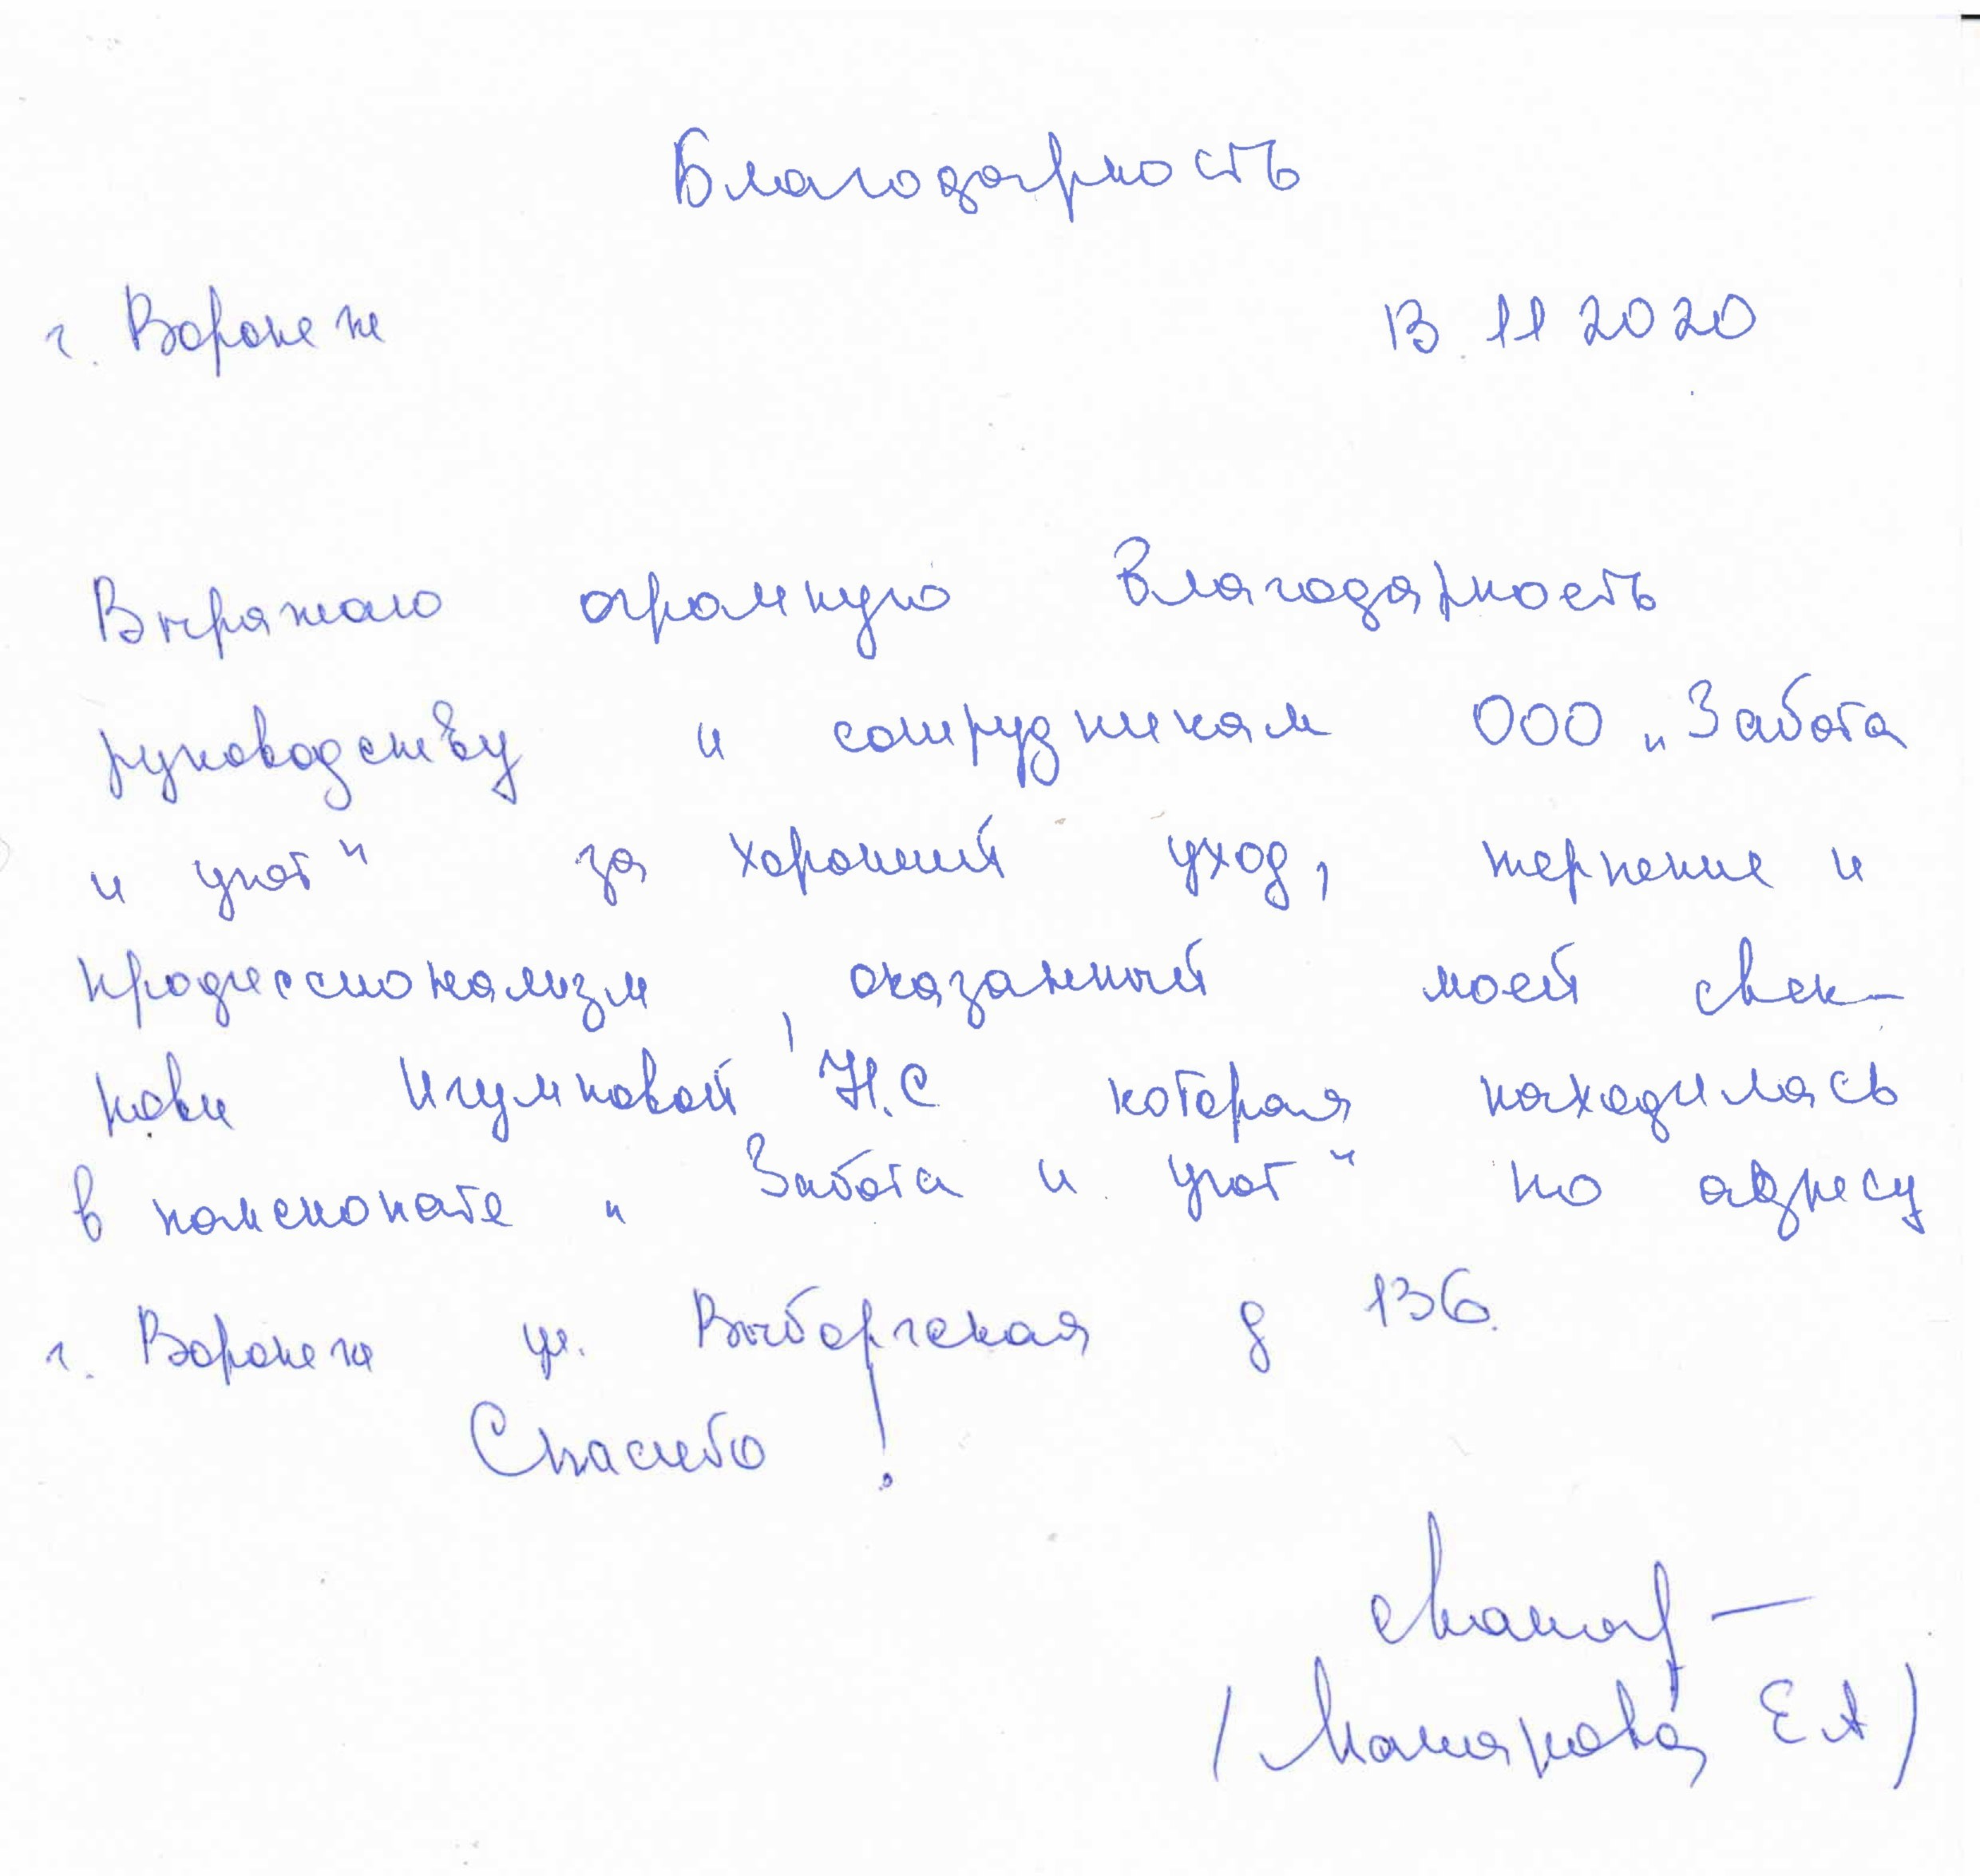 Благодарность
г. Воронеж 13.11 2020
Выражаю огромную благодарность
руководству и сотрудникам ООО „Забота
и уют" за хороший уход, терпение и
профессионализм, оказанный моей свек-
рови Игумновой Н.С которая находилась
в пансионате „Забота и уют" по адресу
г. Воронеж ул. Выборгская д 136.
Спасибо!
Е А)